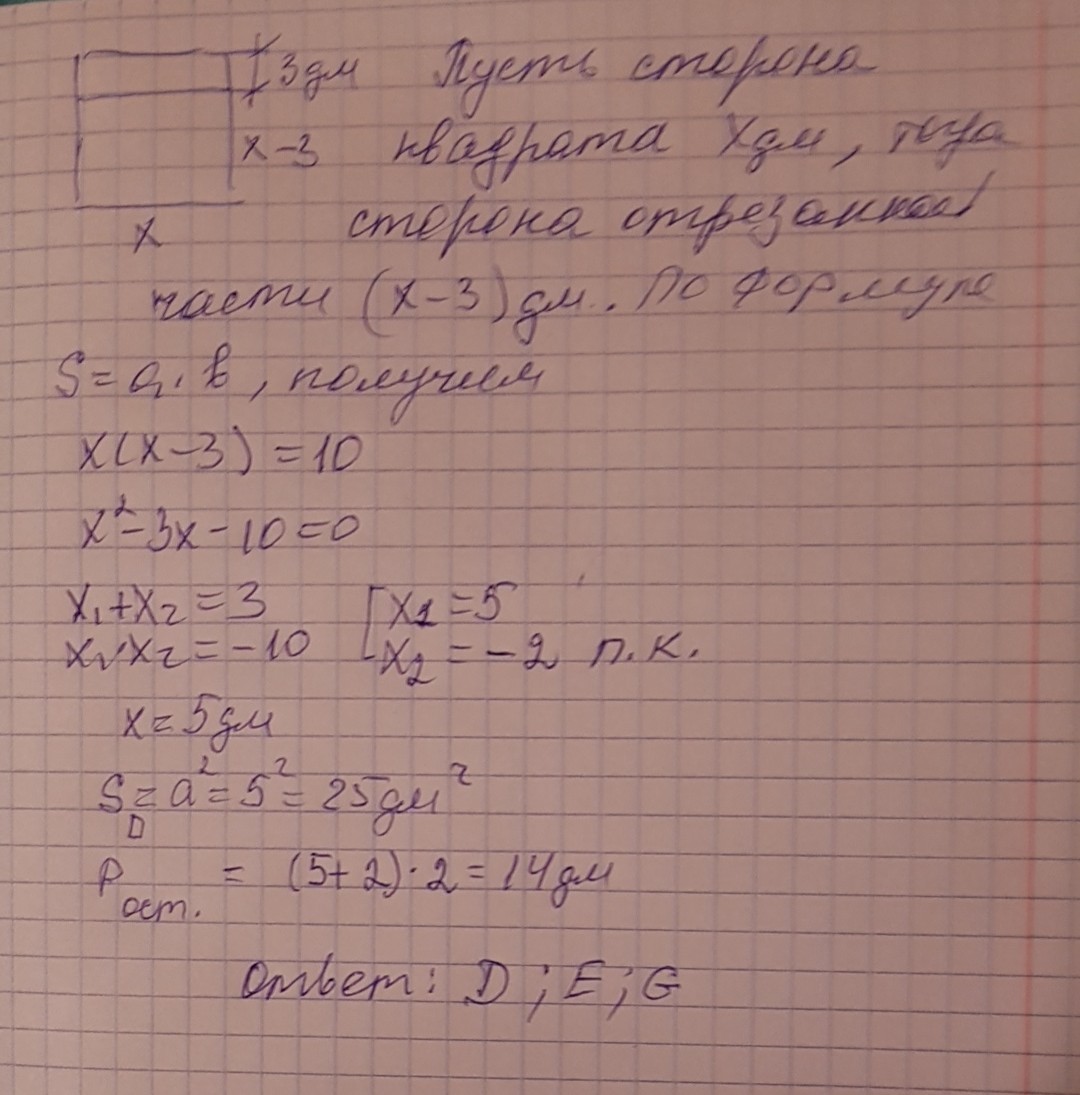 3дм Пусть сторона
x-3 квадрата Xдм, тогда
x сторона отрезанной
части (x-3) дм. По формуле
S=a·b, получим
x(x-3)=10
x²-3x-10=0
x₁+x₂=3 [x₁=5
x₁·x₂=-10 [x₂=-2 п.к.
x=5дм
S□=a²=5²=25дм²
Pост. = (5+2)·2=14дм
Ответ: D; E; G